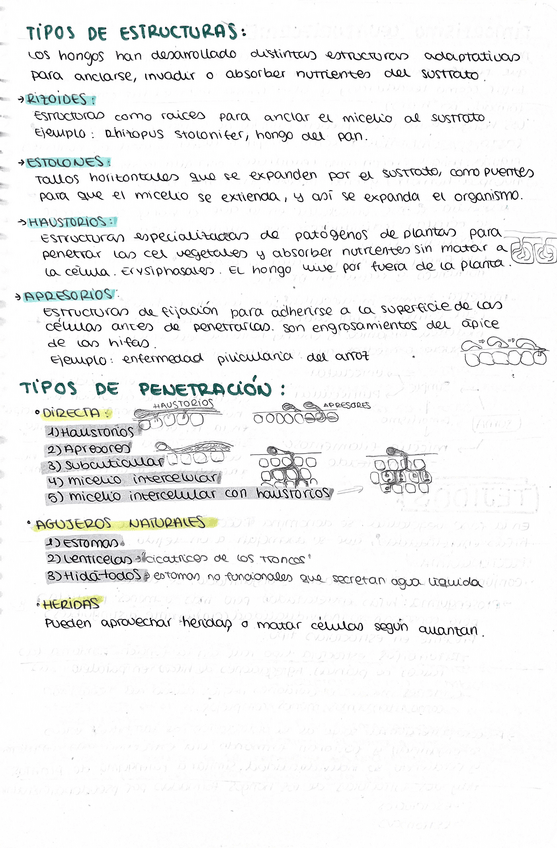 TIPOS DE ESTRUCTURAS:
Los hongos han desarrollado distintas estructuras adaptativas
para anclarse, invadir o absorber nutrientes del sustrato.
→ RIZOIDES:
Estructuras como raíces para anclar el micelio al sustrato.
Ejemplo: Rhizopus stolonifer, hongo del pan.
→ ESTOLONES:
Tallos horizontales que se expanden por el sustrato, como puentes
para que el micelio se extienda, y así se expanda el organismo.
→ HAUSTORIOS:
Estructuras especializadas de patógenos de plantas para
penetrar las cel vegetales y absorber nutrientes sin matar a
la célula. Erysiphasales. El hongo vive por fuera de la planta.
→ APRESORIOS:
Estructuras de fijación para adherirse a la superficie de las
células antes de penetrarlas. Son engrosamientos del ápice
de las hifas.
Ejemplo: enfermedad piricularia del arroz
TIPOS DE PENETRACIÓN:
• DIRECTA: HAUSTORIOS APRESORES
1) Haustorios
2) Apresores
3) Subcuticular
4) micelio intercelular
5) micelio intercelular con haustorios
• AGUJEROS NATURALES
1) Estomas.
2) Lenticelas → 'cicatrices de los troncos'
3) Hidátodos → estomas no funcionales que secretan agua líquida
• HERIDAS
Pueden aprovechar heridas o matar células según avanzan.